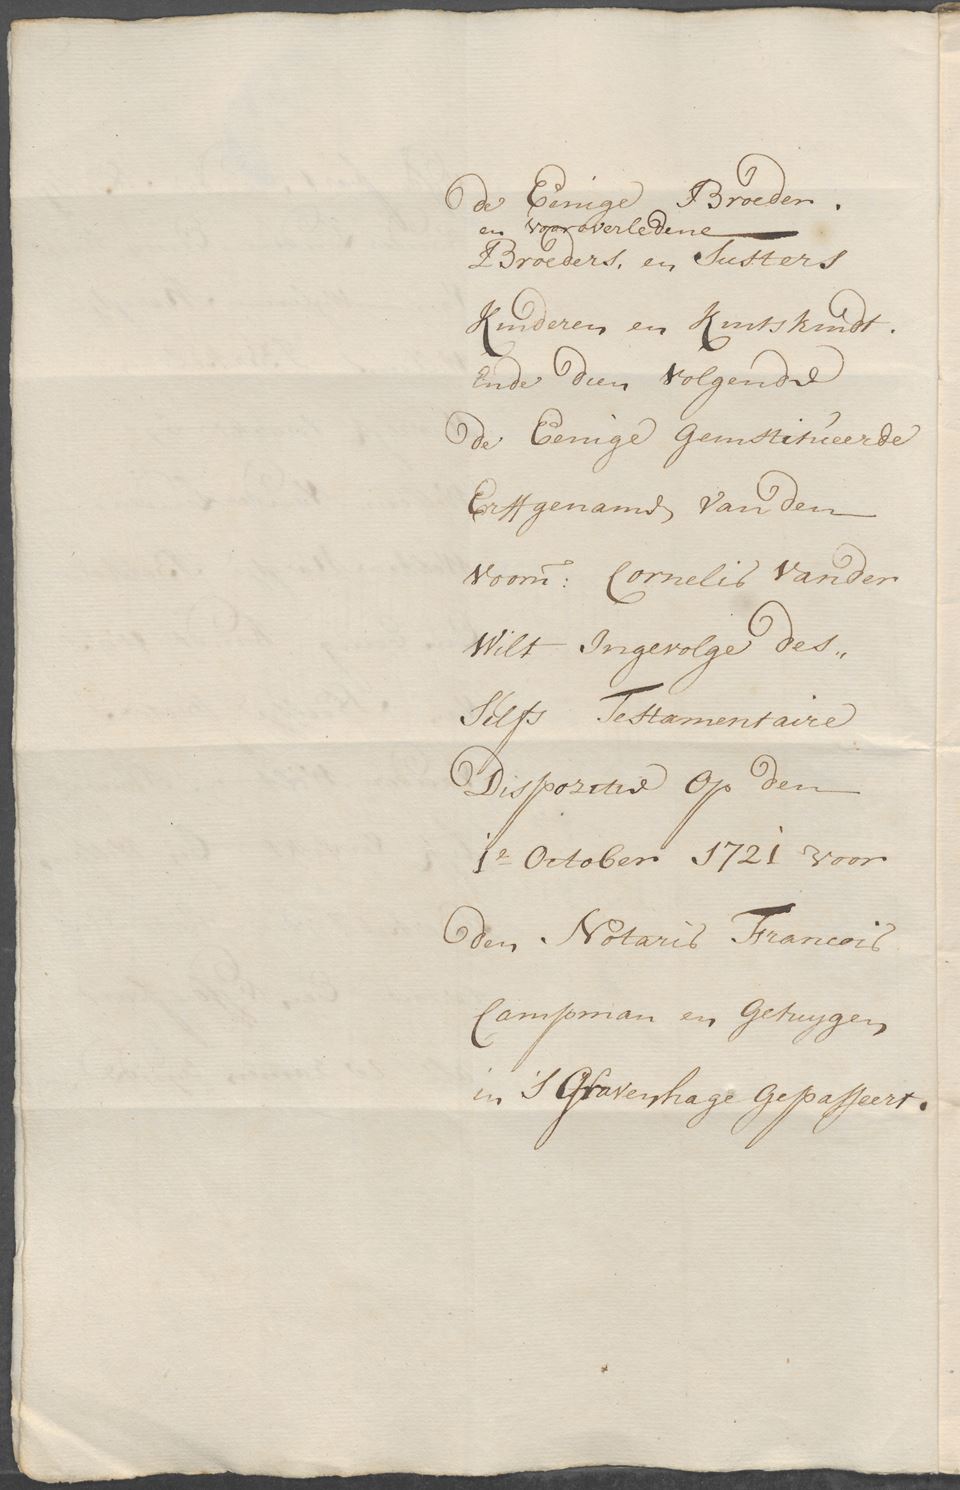 de Eenige Broeder.
en vooroverledene
Broeders, en Susters
Kinderen en Kintskindt.
Ende dien volgende
de Eenige Geinstitueerde
Erffgenamen van den
voorn: Cornelis vander
Wilt Ingevolge des„
Selfs Testamentaire
Dispozitie Op den
1e October 1721 voor
den Notaris Francois
Campman en Getuygen
in 'S Gravenhage Gepasseert.